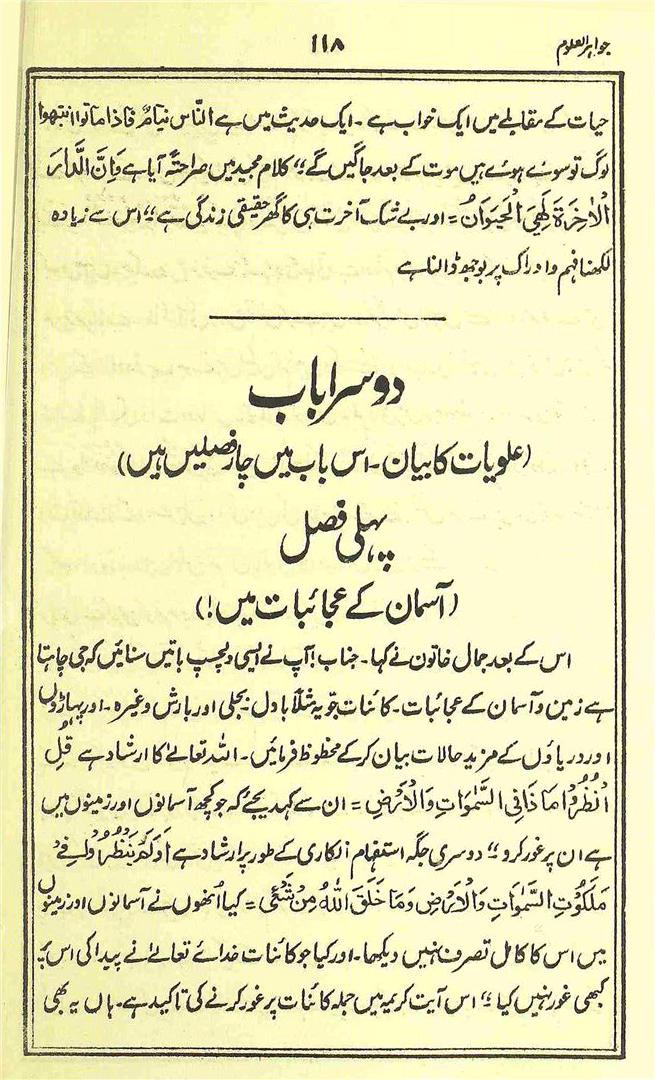 جواہر العلوم
۱۱۸
حیات کے مقابلے میں ایک خواب ہے ۔ ایک حدیث میں ہے النَّاس نیَام فَاذا مَاتوا انتبھوا
لوگ تو سوئے ہوئے ہیں موت کے بعد جاگیں گے،، کلام مجید میں صراحتہً آیا ہے وَاِنَّ الدَّارَ
الْاٰخِرَۃَ لَھِیَ الْحَیَوَانُ = اور بے شک آخرت ہی کا گھر حقیقی زندگی ہے،، اس سے زیادہ
لکھنا فہم و ادراک پر بوجھ ڈالنا ہے
دوسرا باب
(علویات کا بیان ۔ اس باب میں چار فصلیں ہیں)
پہلی فصل
(آسمان کے عجائبات میں!)
اس کے بعد جمال خاتون نے کہا ۔ جناب! آپ نے ایسی دلچسپ باتیں سنائیں کہ جی چاہتا
ہے زمین و آسمان کے عجائبات ۔ کائنات جویہ مثلاً بادل ۔ بجلی اور بارش وغیرہ ۔ اور پہاڑوں
اور دریاؤں کے مزید حالات بیان کر کے محظوظ فرمائیں ۔ اللہ تعالےٰ کا ارشاد ہے قُلِ
انْظُرُوْا مَا ذَا فِی السَّمٰوَاتِ وَالْاَرْضِ = ان سے کہدیجئے کہ جو کچھ آسمانوں اور زمینوں میں
ہے ان پر غور کرو،، دوسری جگہ استفہام انکاری کے طور پر ارشاد ہے اَوَلَمْ یَنْظُرُوْا فِیْ
مَلَکُوْتِ السَّمٰوَاتِ وَالْاَرْضِ وَمَا خَلَقَ اللّٰہُ مِنْ شَیْئٍ = کیا اُنھوں نے آسمانوں اور زمینوں
میں اس کا کامل تصرف نہیں دیکھا ۔ اور کیا جو کائنات خدائے تعالےٰ نے پیدا کی اس پر
کبھی غور نہیں کیا،، اس آیت کریمہ میں جملہ کائنات پر غور کرنے کی تاکید ہے ۔ ہاں یہ بھی